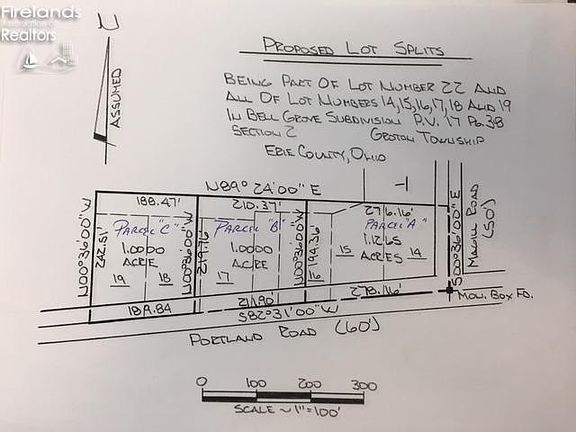 Firelands
Association of
Realtors
N
ASSUMED
PROPOSED LOT SPLITS
BEING PART OF LOT NUMBER 22 AND
ALL OF LOT NUMBERS 14,15,16,17,18 AND 19
IN BELL GROVE SUBDIVISION P.V. 17 PG. 38
SECTION 2 GROTON TOWNSHIP
ERIE COUNTY, OHIO
N89° 24'00" E
188.47' 210.37' 276.16'
PARCEL "C" PARCEL "B" PARCEL "A"
1.0000 1.0000 1.1265
ACRE ACRE ACRES
19 18 17 16 15 14
N00°36'00"W
242.51'
N00°36'00"W
219.76'
N00°36'00"W
194.36'
S00°36'00"E
MAGILL ROAD
(50')
189.84 211.90' 278.16'
S82°31'00"W
MON. BOX FD.
PORTLAND ROAD (60')
0 100 200 300
SCALE ~ 1"=100'